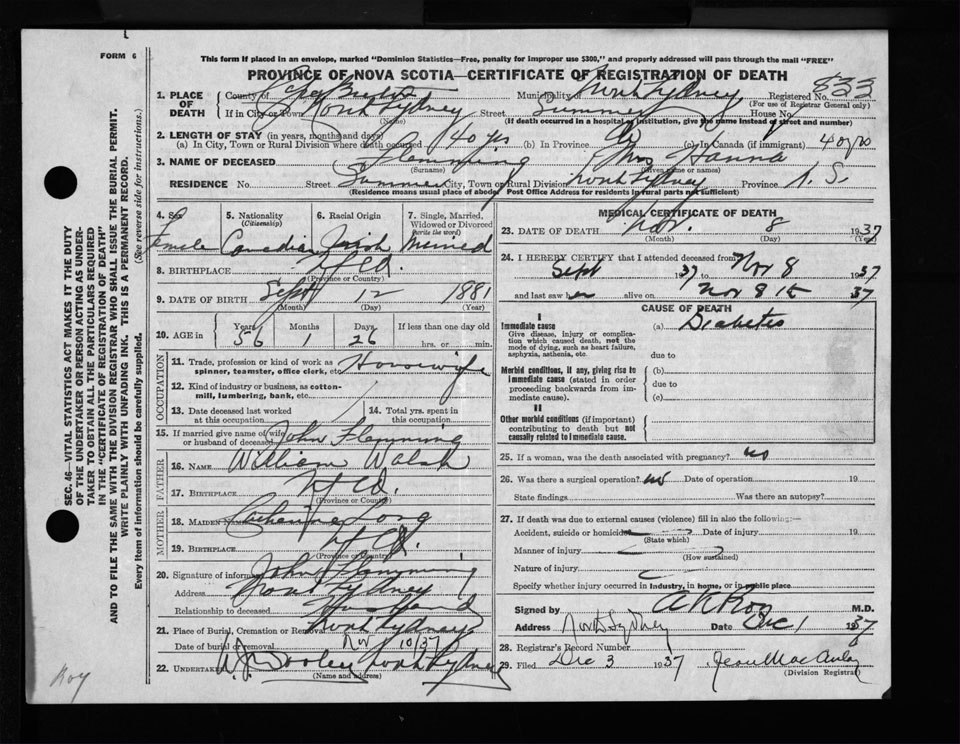 FORM 6
This form if placed in an envelope, marked "Dominion Statistics—Free, penalty for improper use $300," and properly addressed will pass through the mail "FREE"
PROVINCE OF NOVA SCOTIA—CERTIFICATE OF REGISTRATION OF DEATH
1. PLACE OF DEATH
County of Cape Breton Municipality North Sydney Registered No. 832
(For use of Registrar General only)
If in City or Town North Sydney Street Summer House No.
(Name) (If death occurred in a hospital or institution, give the name instead of street and number)
2. LENGTH OF STAY (in years, months and days)
(a) In City, Town or Rural Division where death occurred 40 yrs (b) In Province (c) In Canada (if immigrant) 40 yrs
3. NAME OF DECEASED Flemming Mrs Hanna
(Surname) (Given name or names)
RESIDENCE No. Street Summer City, Town or Rural Division North Sydney Province N. S.
(Residence means usual place of abode. Post Office Address for residents in rural parts not sufficient)
4. Sex Female
5. Nationality (Citizenship) Canadian
6. Racial Origin Irish
7. Single, Married, Widowed or Divorced (write the word) Married
8. BIRTHPLACE Nfld.
(Province or Country)
9. DATE OF BIRTH Sept 12 1881
(Month) (Day) (Year)
10. AGE in Years 56 Months 1 Days 26 If less than one day old hrs. or min.
OCCUPATION
11. Trade, profession or kind of work as spinner, teamster, office clerk, etc. Housewife
12. Kind of industry or business, as cotton-mill, lumbering, bank, etc.
13. Date deceased last worked at this occupation
14. Total yrs. spent in this occupation
15. If married give name of wife or husband of deceased John Flemming
FATHER
16. NAME William Walsh
17. BIRTHPLACE Nfld.
(Province or Country)
MOTHER
18. MAIDEN NAME Catherine Long
19. BIRTHPLACE Nfld.
(Province or Country)
20. Signature of informant John Flemming
Address North Sydney
Relationship to deceased Husband
21. Place of Burial, Cremation or Removal North Sydney
Date of burial or removal Nov 10/37
22. UNDERTAKER W. J. Dooley North Sydney
(Name and address)
MEDICAL CERTIFICATE OF DEATH
23. DATE OF DEATH Nov. 8 1937
(Month) (Day) (Year)
24. I HEREBY CERTIFY that I attended deceased from
Sept 1937 to Nov 8 1937
and last saw her alive on Nov 8th 37
CAUSE OF DEATH
I
Immediate cause (a) Diabetes
Give disease, injury or complication which caused death, not the mode of dying, such as heart failure, asphyxia, asthenia, etc.
due to
Morbid conditions, if any, giving rise to immediate cause (stated in order proceeding backwards from immediate cause).
(b)
due to
(c)
II
Other morbid conditions (if important) contributing to death but not causally related to immediate cause.
25. If a woman, was the death associated with pregnancy? no
26. Was there a surgical operation? no Date of operation 19
State findings Was there an autopsy?
27. If death was due to external causes (violence) fill in also the following:—
Accident, suicide or homicide Date of injury 19
(State which)
Manner of injury
(How sustained)
Nature of injury
Specify whether injury occurred in industry, in home, or in public place
Signed by M.D.
Address North Sydney Date Dec 1 1937
28. Registrar's Record Number
29. Filed Dec 3 1937 Jean MacAulay
(Division Registrar)
SEC. 46—VITAL STATISTICS ACT MAKES IT THE DUTY
OF THE UNDERTAKER OR PERSON ACTING AS UNDER-
TAKER TO OBTAIN ALL THE PARTICULARS REQUIRED
IN THE "CERTIFICATE OF REGISTRATION OF DEATH"
AND TO FILE THE SAME WITH THE DIVISION REGISTRAR WHO SHALL ISSUE THE BURIAL PERMIT.
WRITE PLAINLY WITH UNFADING INK. THIS IS A PERMANENT RECORD.
Every item of information should be carefully supplied. (See reverse side for instructions.)